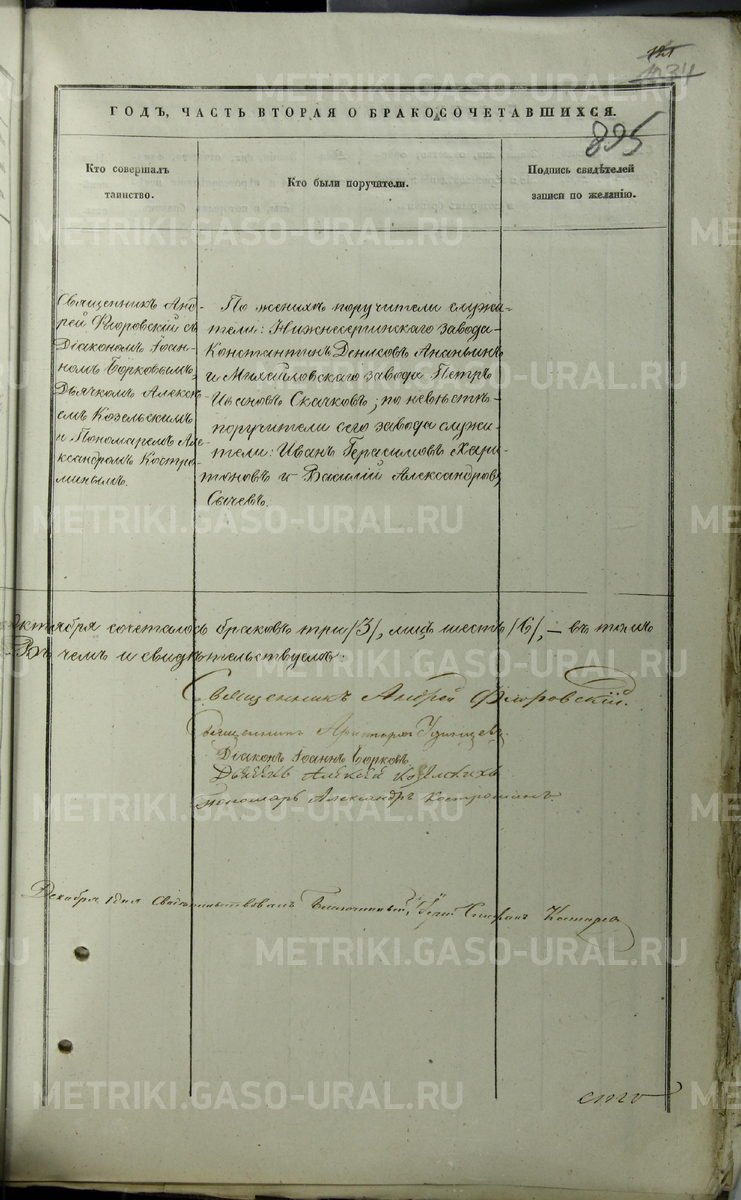 1234
ГОДЪ, ЧАСТЬ ВТОРАЯ О БРАКОСОЧЕТАВШИХСЯ.
895
Кто совершалъ
таинство.
Кто были поручатели.
Подпись свидѣтелей
записи по желанію.
Священникъ Анд-
рей Флоровскій съ
Діакономъ Іоан-
номъ Борковымъ,
Дьячкомъ Алексѣ-
емъ Козельскимъ
и Пономаремъ Але-
ксандромъ Костро-
минымъ.
По женихѣ поручители служи-
тели: Нижнесергинскаго завода
Константинъ Денисовъ Ананьинъ
и Михайловскаго завода Петръ
Ивановъ Скачковъ; по невѣстѣ
поручители сего завода служи-
тели: Иванъ Герасимовъ Хари-
тоновъ и Василій Александровъ
Сычевъ.
октября сочеталось браковъ три /3/, лицъ шесть /6/, — въ томъ
Въ чемъ и свидѣтельствуемъ:
Священникъ Андрей Флоровскій.
Священникъ Удинцевъ
Діаконъ Іоаннъ Борковъ
Дьячекъ Алексѣй
Пономарь Александръ Костроминъ.
Декабря дня Свидѣтельствовалъ Благочинный, Стефанъ
METRIKI.GASO-URAL.RU